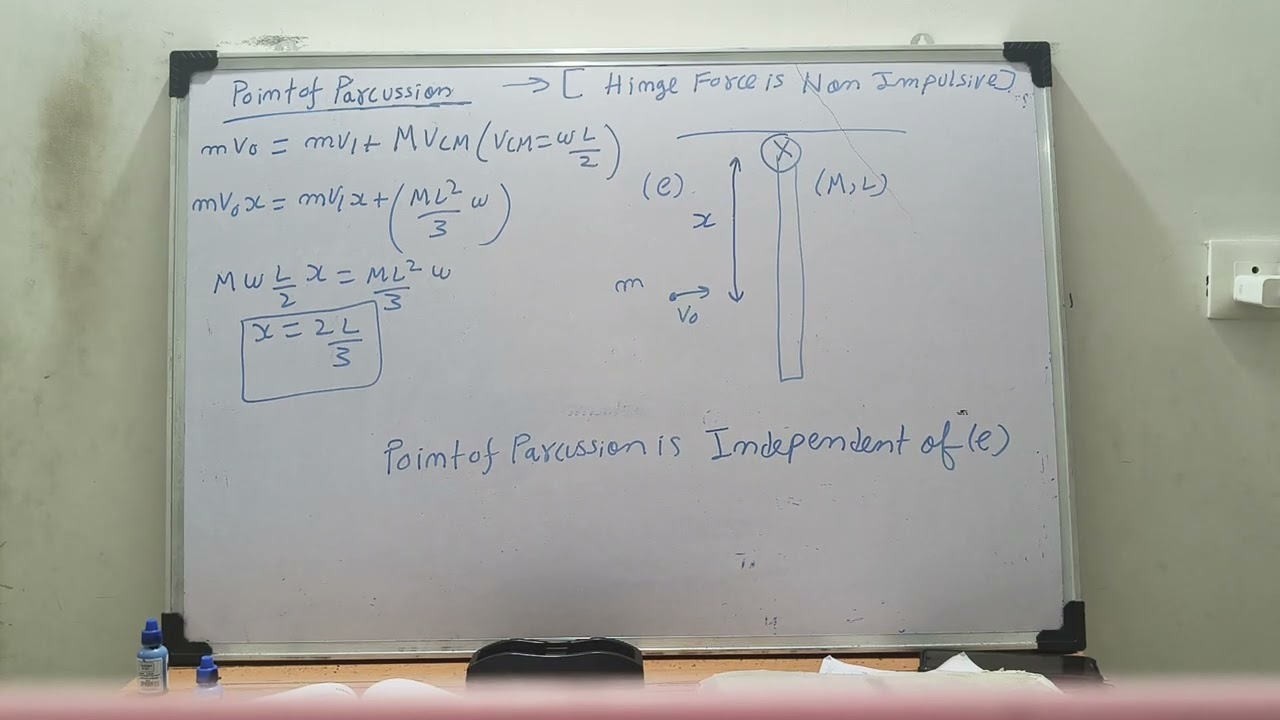 Point of Parcussion → [ Hinge Force is Non Impulsive]
mV₀ = mV₁ + MVCM (VCM = ωL/2)
mV₀x = mV₁x + (ML²/3 ω)
Mω L/2 x = ML²/3 ω
x = 2L/3
(e)
(M, L)
x
m
V₀
Point of Parcussion is Independent of (e)